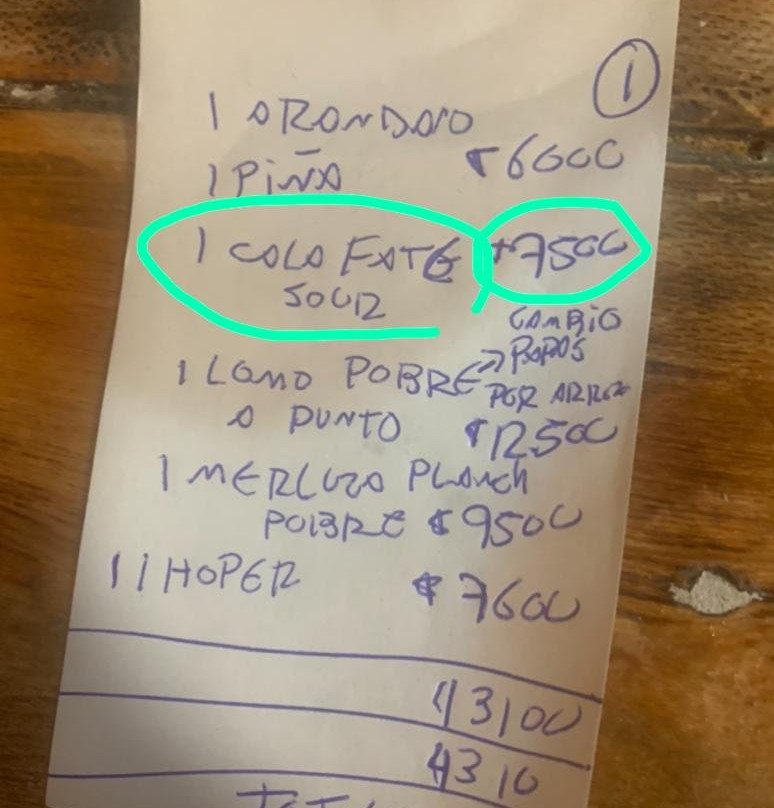 1
1 ARANDANO
1 PIÑA $6000
1 CALAFATE $7500
SOUR
CAMBIO
1 LOMO POBRE → PAPAS
POR ARROZ
A PUNTO $12500
1 MERLUZA PLANCH
POBRE $9500
11 HOPER $7600
43100
4310